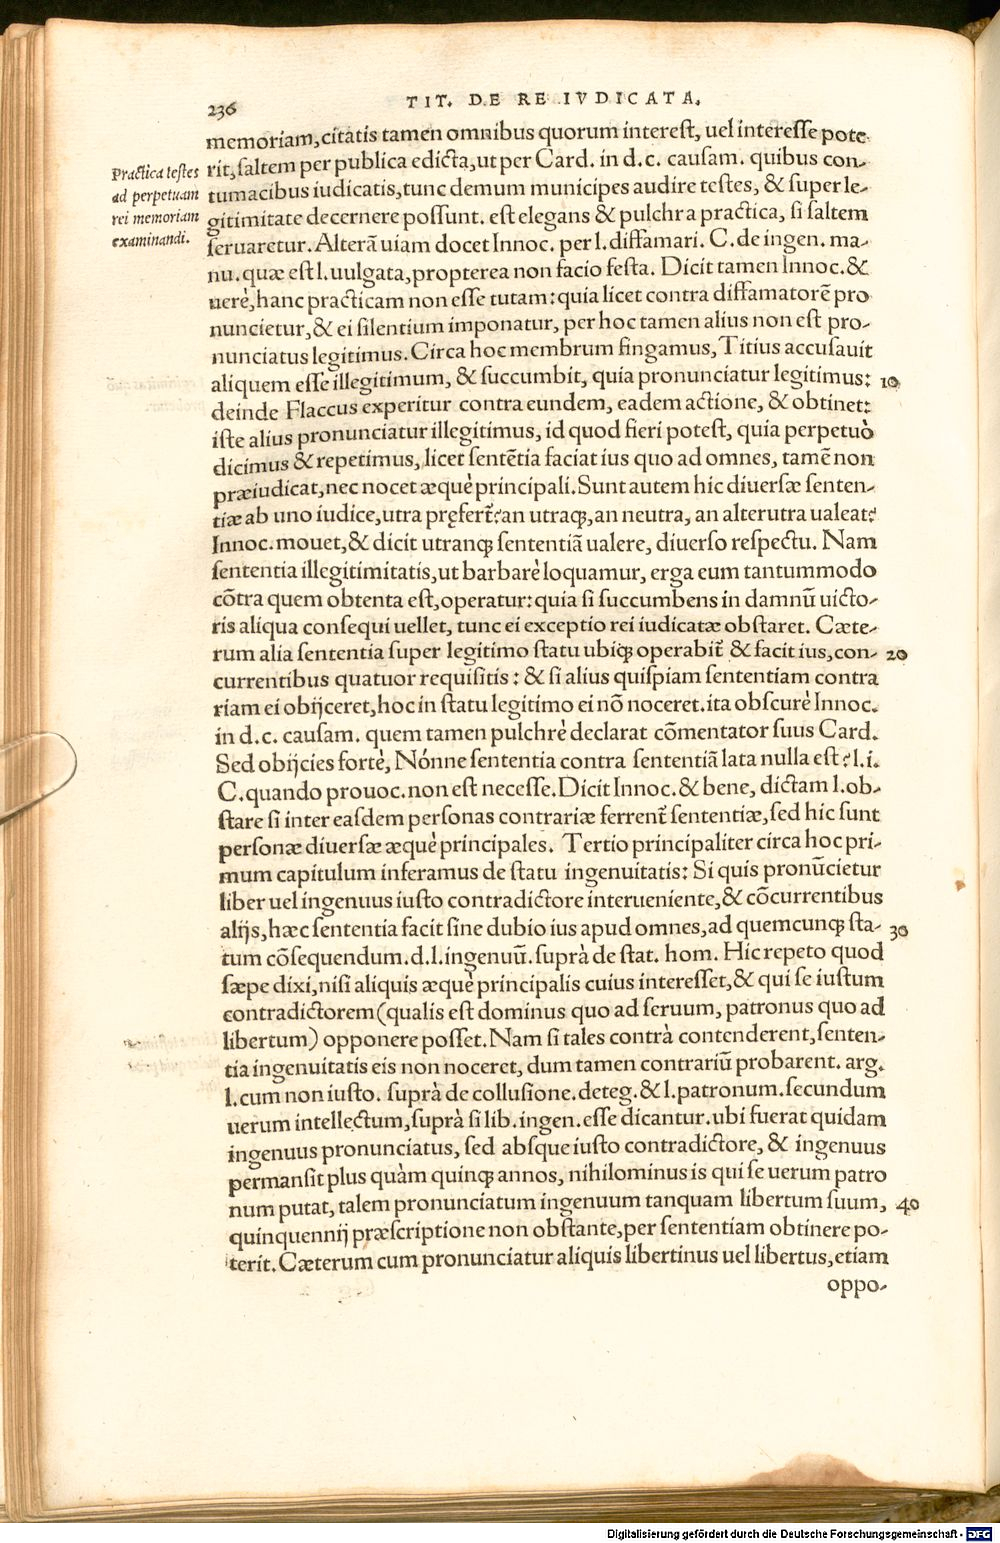 236
TIT. DE RE IVDICATA.
memoriam, citatis tamen omnibus quorum interest, uel interesse pote-
rit, saltem per publica edicta, ut per Card. in d.c. causam. quibus con-
tumacibus iudicatis, tunc demum municipes audire testes, & super le-
gitimitate decernere possunt. est elegans & pulchra practica, si saltem
seruaretur. Alterā uiam docet Innoc. per l. diffamari. C. de ingen. ma-
nu. quæ est l. uulgata, propterea non facio festa. Dicit tamen Innoc. &
uerè, hanc practicam non esse tutam: quia licet contra diffamatorē pro
nuncietur, & ei silentium imponatur, per hoc tamen alius non est pro-
nunciatus legitimus. Circa hoc membrum fingamus, Titius accusauit
aliquem esse illegitimum, & succumbit, quia pronunciatur legitimus:
deinde Flaccus experitur contra eundem, eadem actione, & obtinet:
iste alius pronunciatur illegitimus, id quod fieri potest, quia perpetuò
dicimus & repetimus, licet sentētia faciat ius quo ad omnes, tamē non
præiudicat, nec nocet æquè principali. Sunt autem hic diuersæ senten-
tiæ ab uno iudice, utra pręfert̃? an utraq;, an neutra, an alterutra ualeat?
Innoc. mouet, & dicit utranq; sententiā ualere, diuerso respectu. Nam
sententia illegitimitatis, ut barbarè loquamur, erga eum tantummodo
cōtra quem obtenta est, operatur: quia si succumbens in damnū uicto-
ris aliqua consequi uellet, tunc ei exceptio rei iudicatæ obstaret. Cæte-
rum alia sententia super legitimo statu ubiq; operabit̃ & facit ius, con-
currentibus quatuor requisitis: & si alius quispiam sententiam contra
riam ei obijceret, hoc in statu legitimo ei nō noceret. ita obscurè Innoc.
in d.c. causam. quem tamen pulchrè declarat cōmentator suus Card.
Sed obijcies fortè, Nónne sententia contra sententiā lata nulla est? l. i.
C. quando prouoc. non est necesse. Dicit Innoc. & bene, dictam l. ob-
stare si inter easdem personas contrariæ ferrent̃ sententiæ, sed hic sunt
personæ diuersæ æquè principales. Tertio principaliter circa hoc pri-
mum capitulum inferamus de statu ingenuitatis: Si quis pronūcietur
liber uel ingenuus iusto contradictore interueniente, & cōcurrentibus
alijs, hæc sententia facit sine dubio ius apud omnes, ad quemcunq; sta-
tum cōsequendum. d.l. ingenuū. suprà de stat. hom. Hic repeto quod
sæpe dixi, nisi aliquis æquè principalis cuius interesset, & qui se iustum
contradictorem (qualis est dominus quo ad seruum, patronus quo ad
libertum) opponere posset. Nam si tales contrà contenderent, senten-
tia ingenuitatis eis non noceret, dum tamen contrariū probarent. arg.
l. cum non iusto. suprà de collusione. deteg. & l. patronum. secundum
uerum intellectum, suprà si lib. ingen. esse dicantur. ubi fuerat quidam
ingenuus pronunciatus, sed absque iusto contradictore, & ingenuus
permansit plus quàm quinq; annos, nihilominus is qui se uerum patro
num putat, talem pronunciatum ingenuum tanquam libertum suum,
quinquennij præscriptione non obstante, per sententiam obtinere po-
terit. Cæterum cum pronunciatur aliquis libertinus uel libertus, etiam
oppo-
Practica testes
ad perpetuam
rei memoriam
examinandi.
10
20
30
40
Digitalisierung gefördert durch die Deutsche Forschungsgemeinschaft - DFG